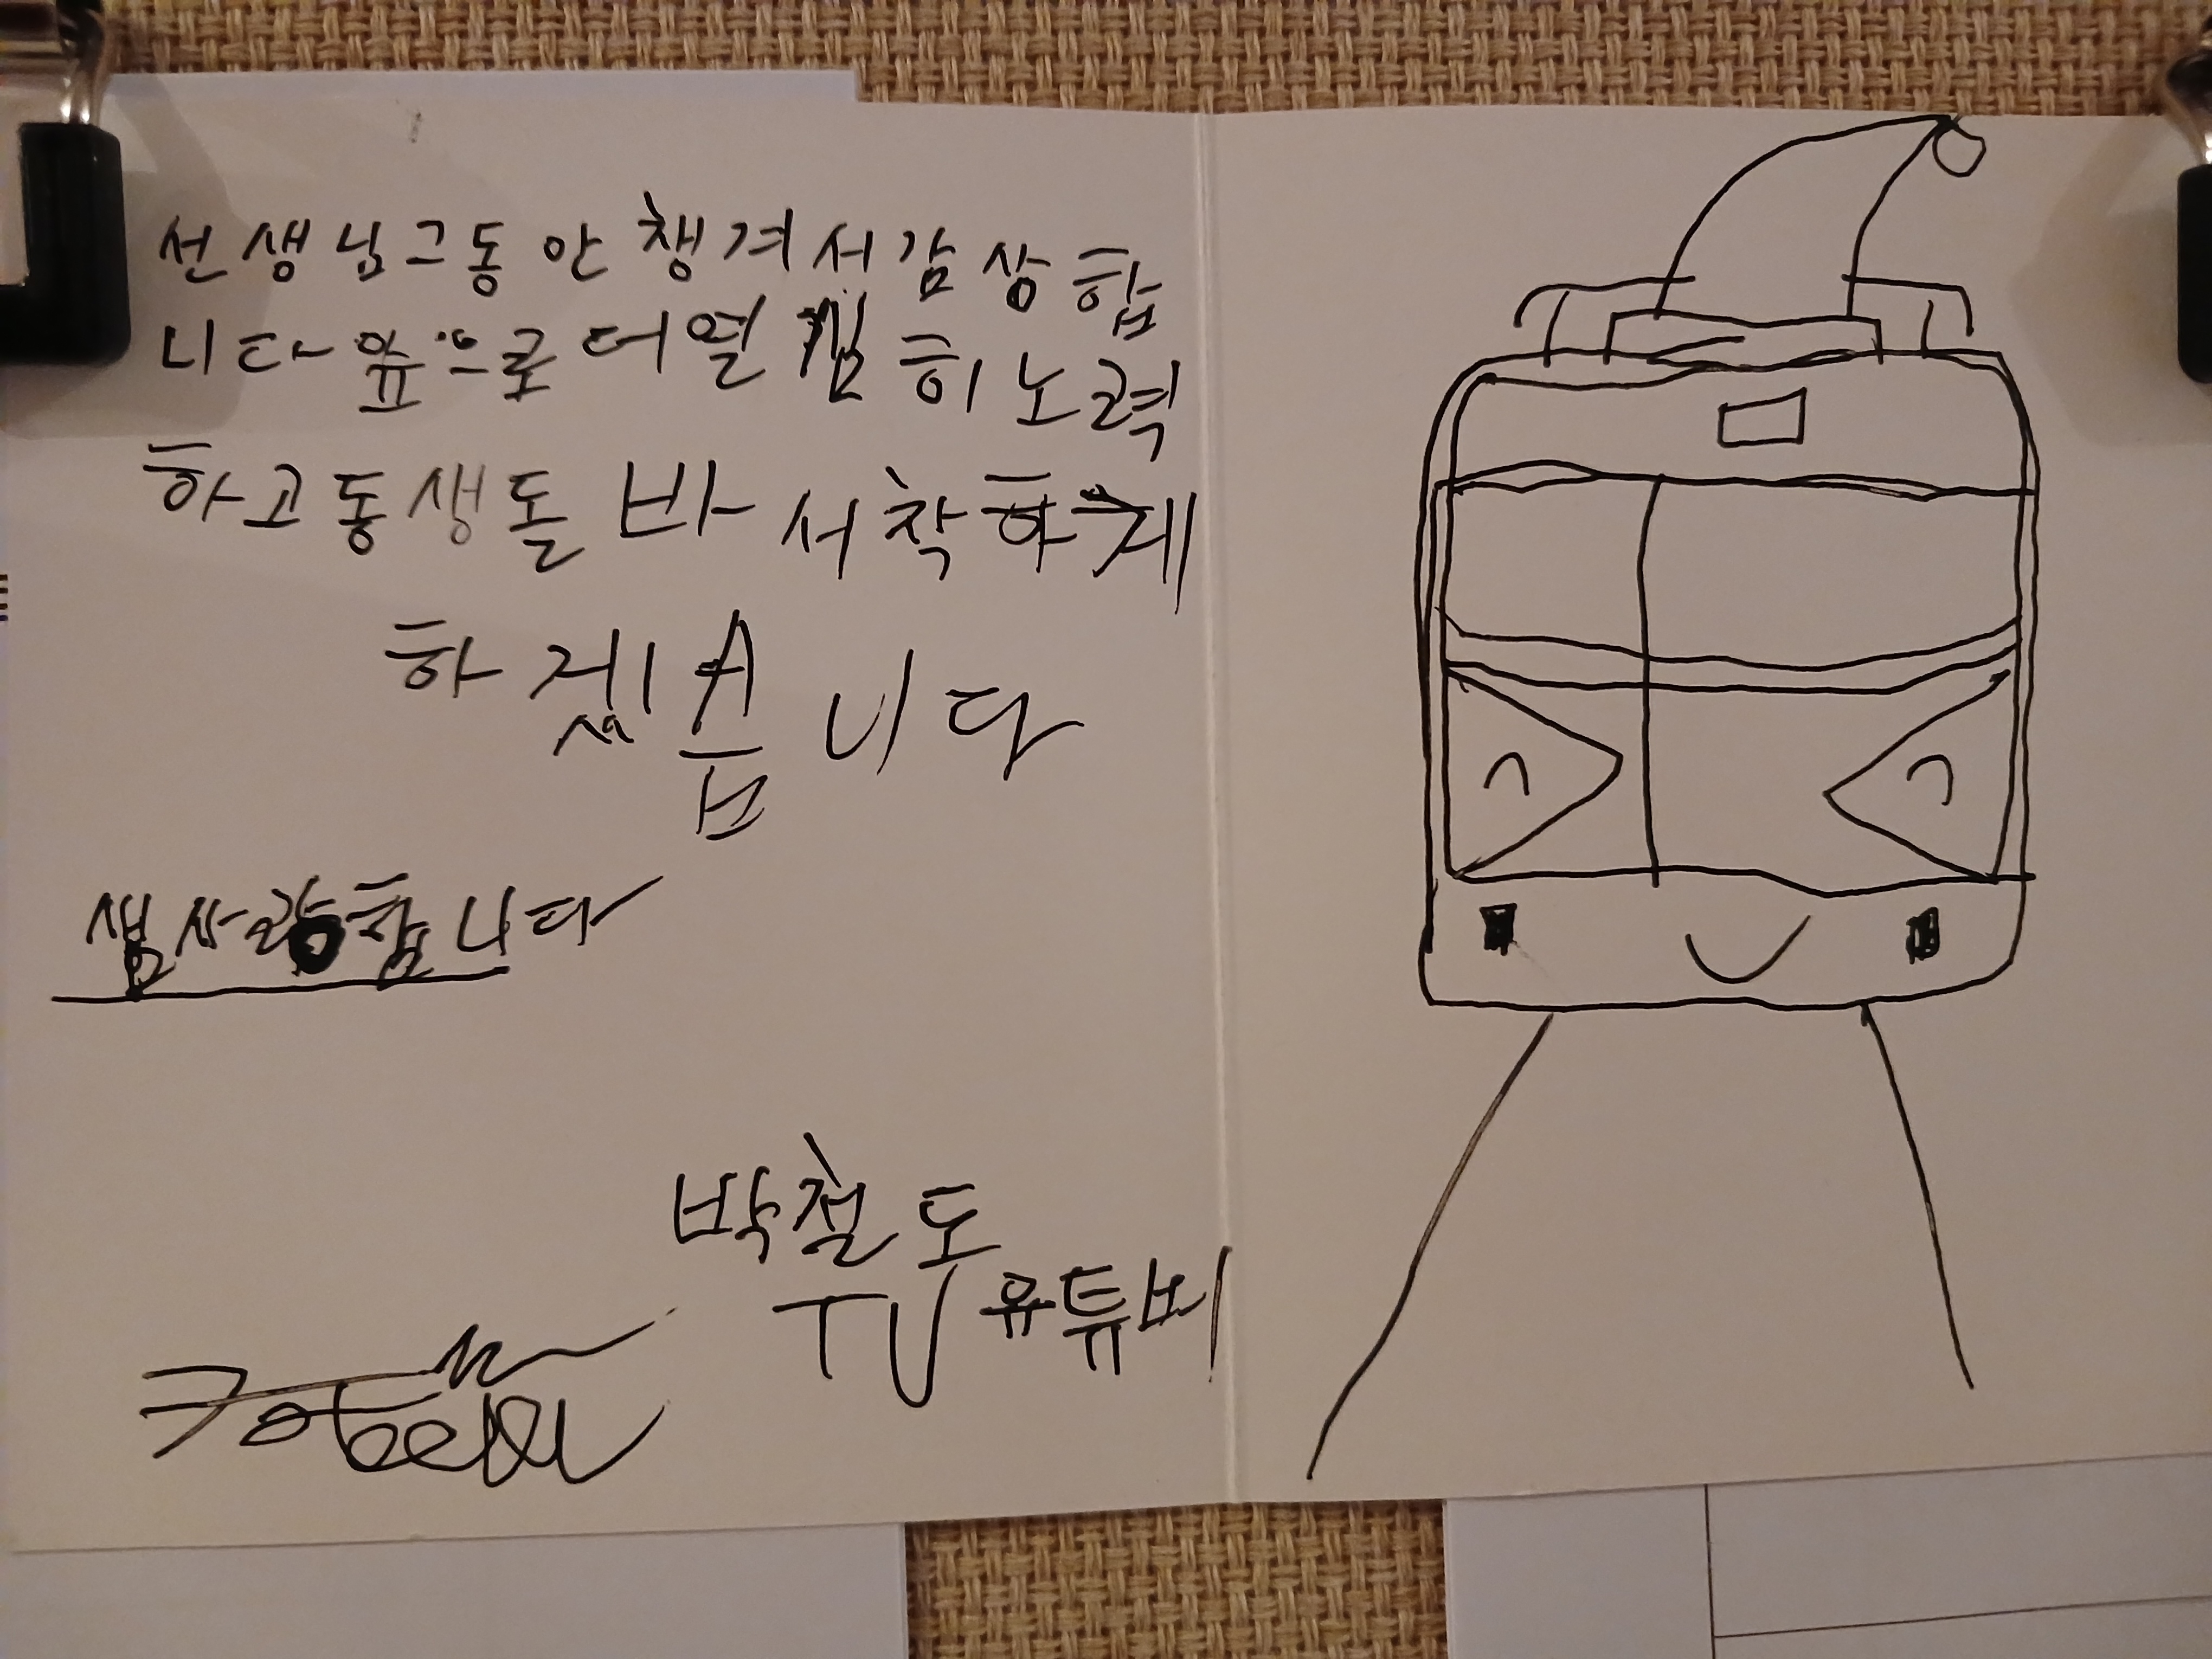 선생님그동안챙겨서감상합
니다앞으로더열심히노력
하고동생돌바서착하게
하겠습니다
쌤사랑합니다
박철도
TV유튜버